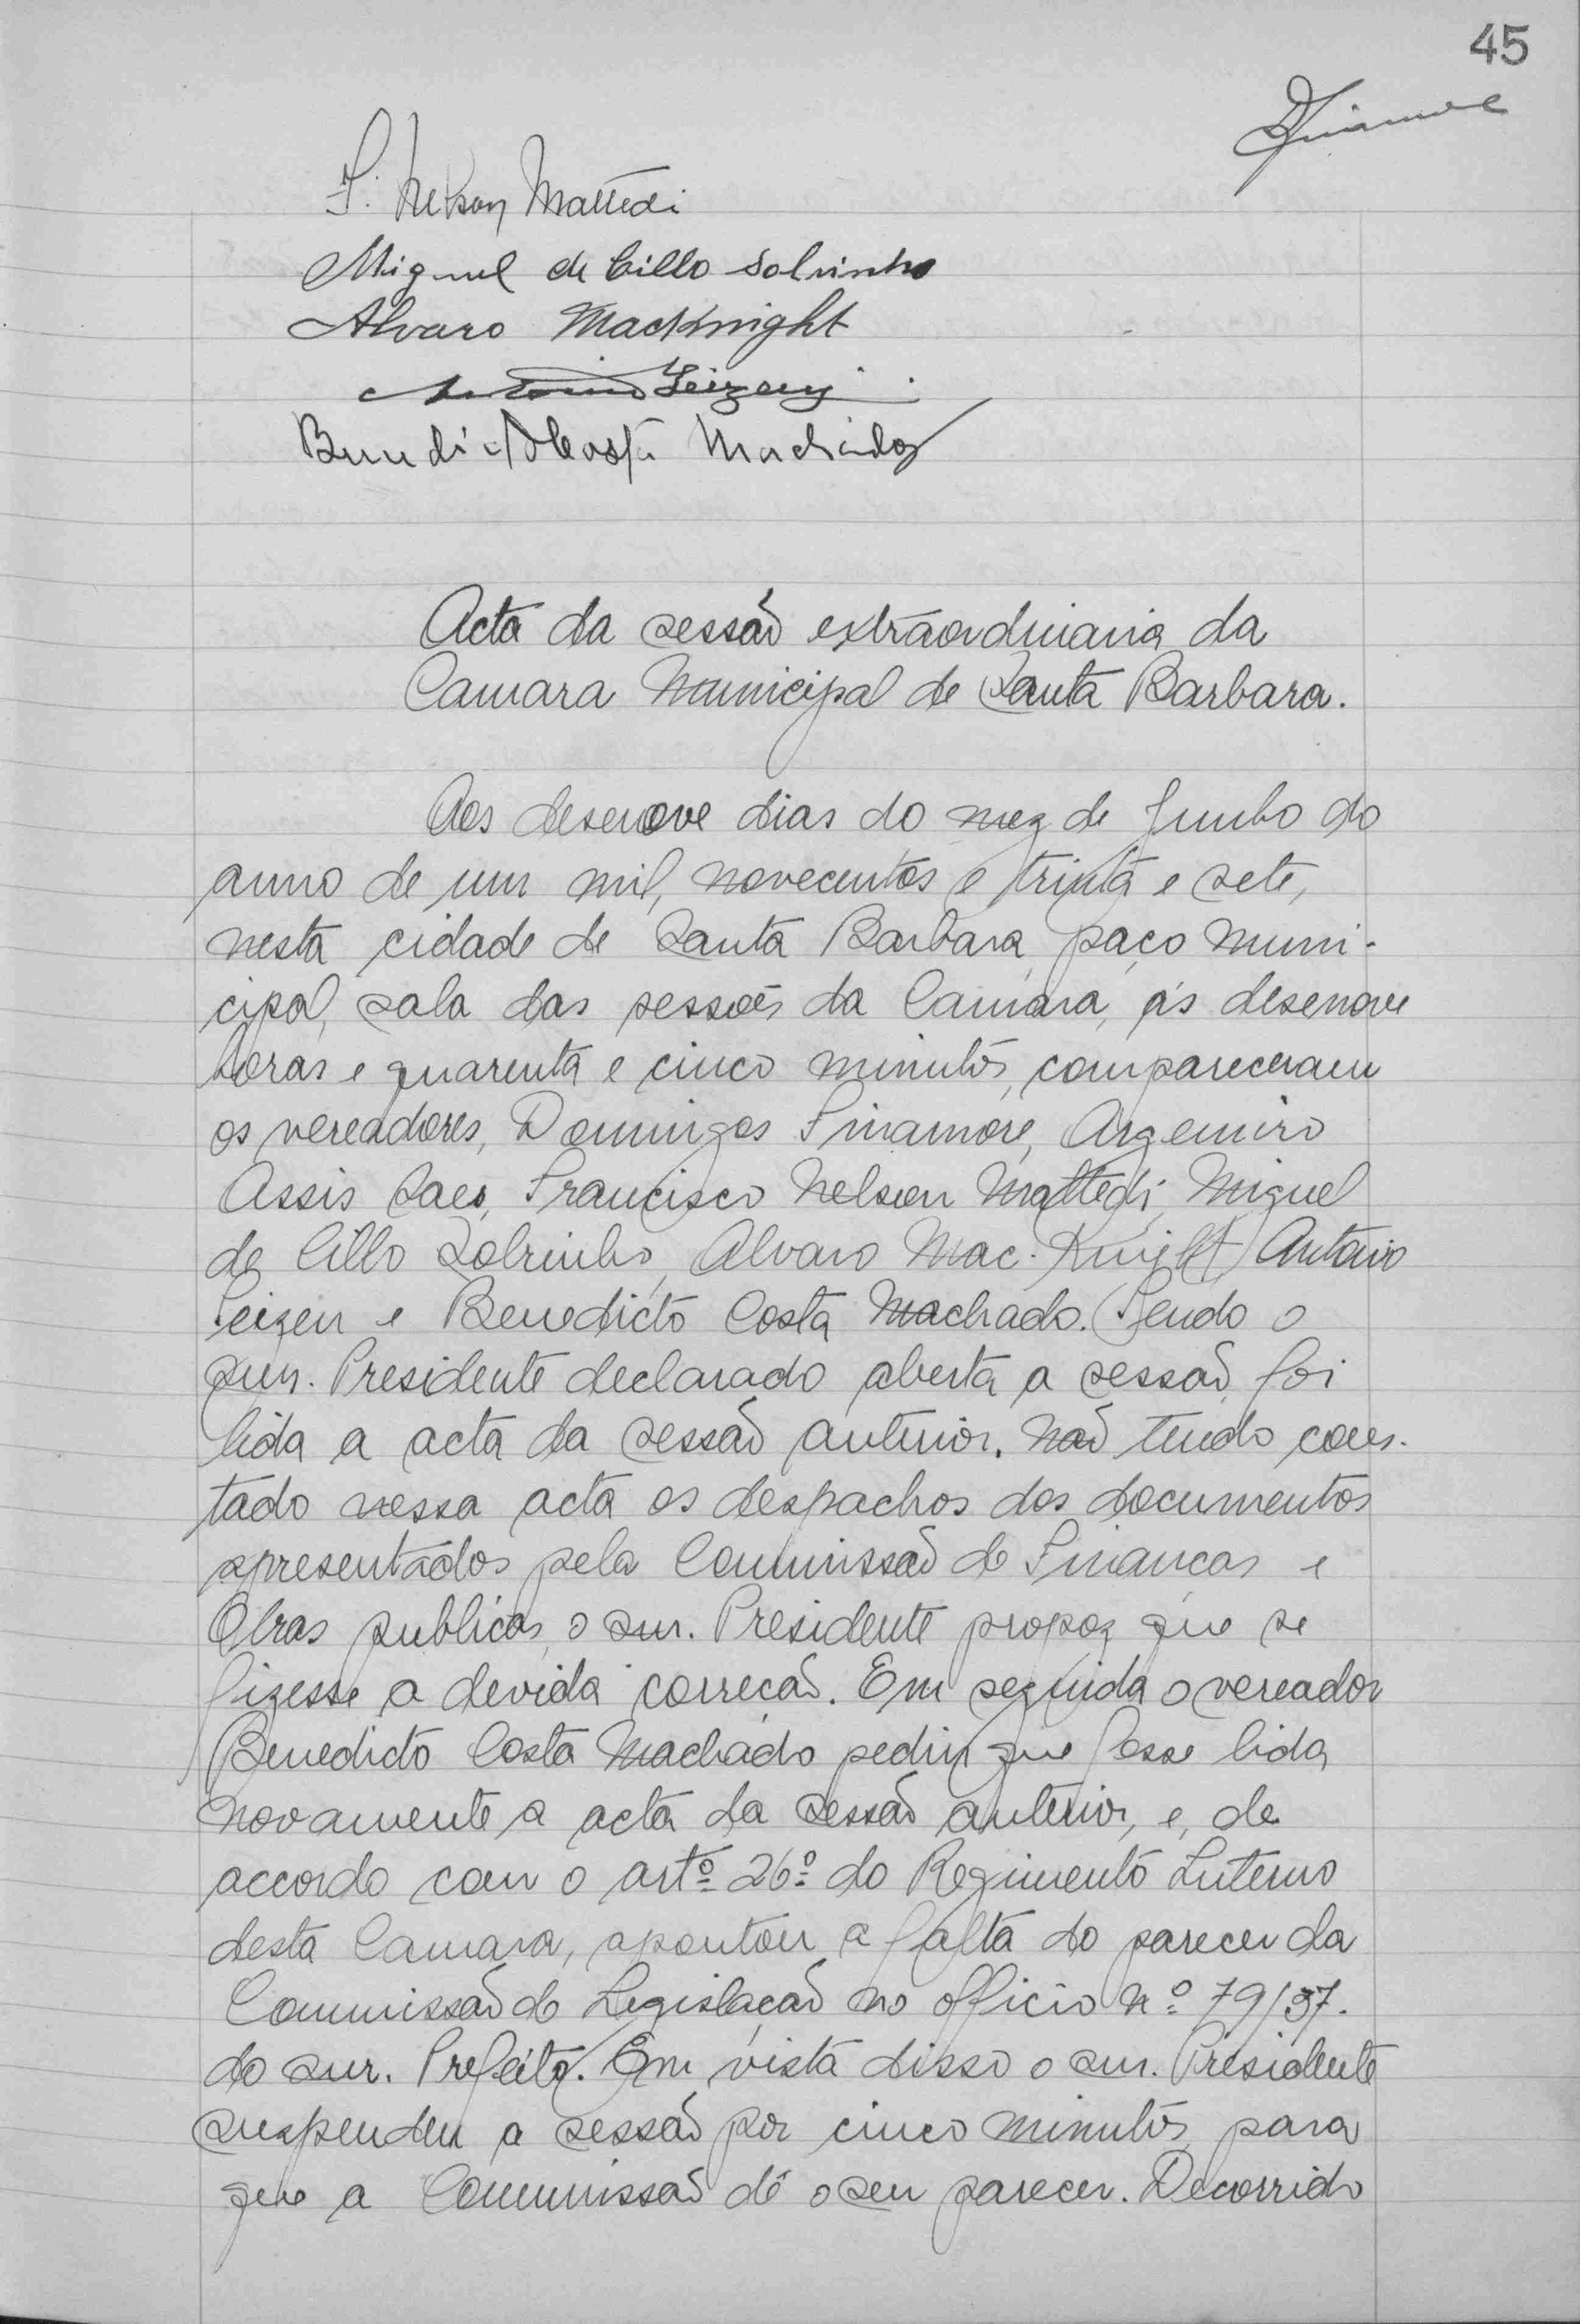 45
F. Nelson Mattedi
Miguel de Cillo Sobrinho
Alvaro MacKnight
Benedicto Costa Machado
Acta da sessão extraordinaria da
Camara Municipal de Santa Barbara.
Aos desenove dias do mez de Junho do
anno de um mil, novecentos e trinta e sete,
nesta cidade de Santa Barbara, paço muni-
cipal, sala das sessões da Camara, ás desenove
horas e quarenta e cinco minutos, compareceram
os vereadores, Domingos Finamore, Argemiro
Assis Saes, Francisco Nelson Mattedi, Miguel
de Cillo Sobrinho, Alvaro Mac-Knight, Antonio
e Benedicto Costa Machado. Tendo o
snr. Presidente declarado aberta a sessão, foi
lida a acta da sessão anterior. Não tendo cons-
tado nessa acta os despachos dos documentos
apresentados pela Commissão de Finanças e
Obras publicas, o snr. Presidente propoz que se
fizesse a devida correcão. Em seguida o vereador
Benedicto Costa Machado pediu que fosse lida
novamente a acta da sessão anterior, e, de
accordo com o artº 26º do Regimento Interno
desta Camara, apontou a falta do parecer da
Commissão de Legislação no officio nº 79/37.
do snr. Prefeito. Em vista disso o snr. Presidente
suspendeu a sessão por cinco minutos, para
que a Commissão dê o seu parecer. Decorrido